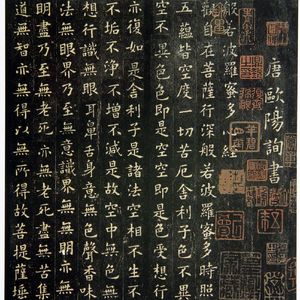 唐歐陽詢書
般若波羅蜜多心經
觀自在菩薩行深般若波羅蜜多時照
五蘊皆空度一切苦厄舍利子色不異
空不異色色即是空空即是色受想行
亦復如是舍利子是諸法空相不生不
不垢不淨不增不減是故空中無色無
想行識無眼耳鼻舌身意無色聲香味
法無眼界乃至無意識界無無明亦無
明盡乃至無老死亦無老死盡無苦集
道無智亦無得以無所得故菩提薩埵